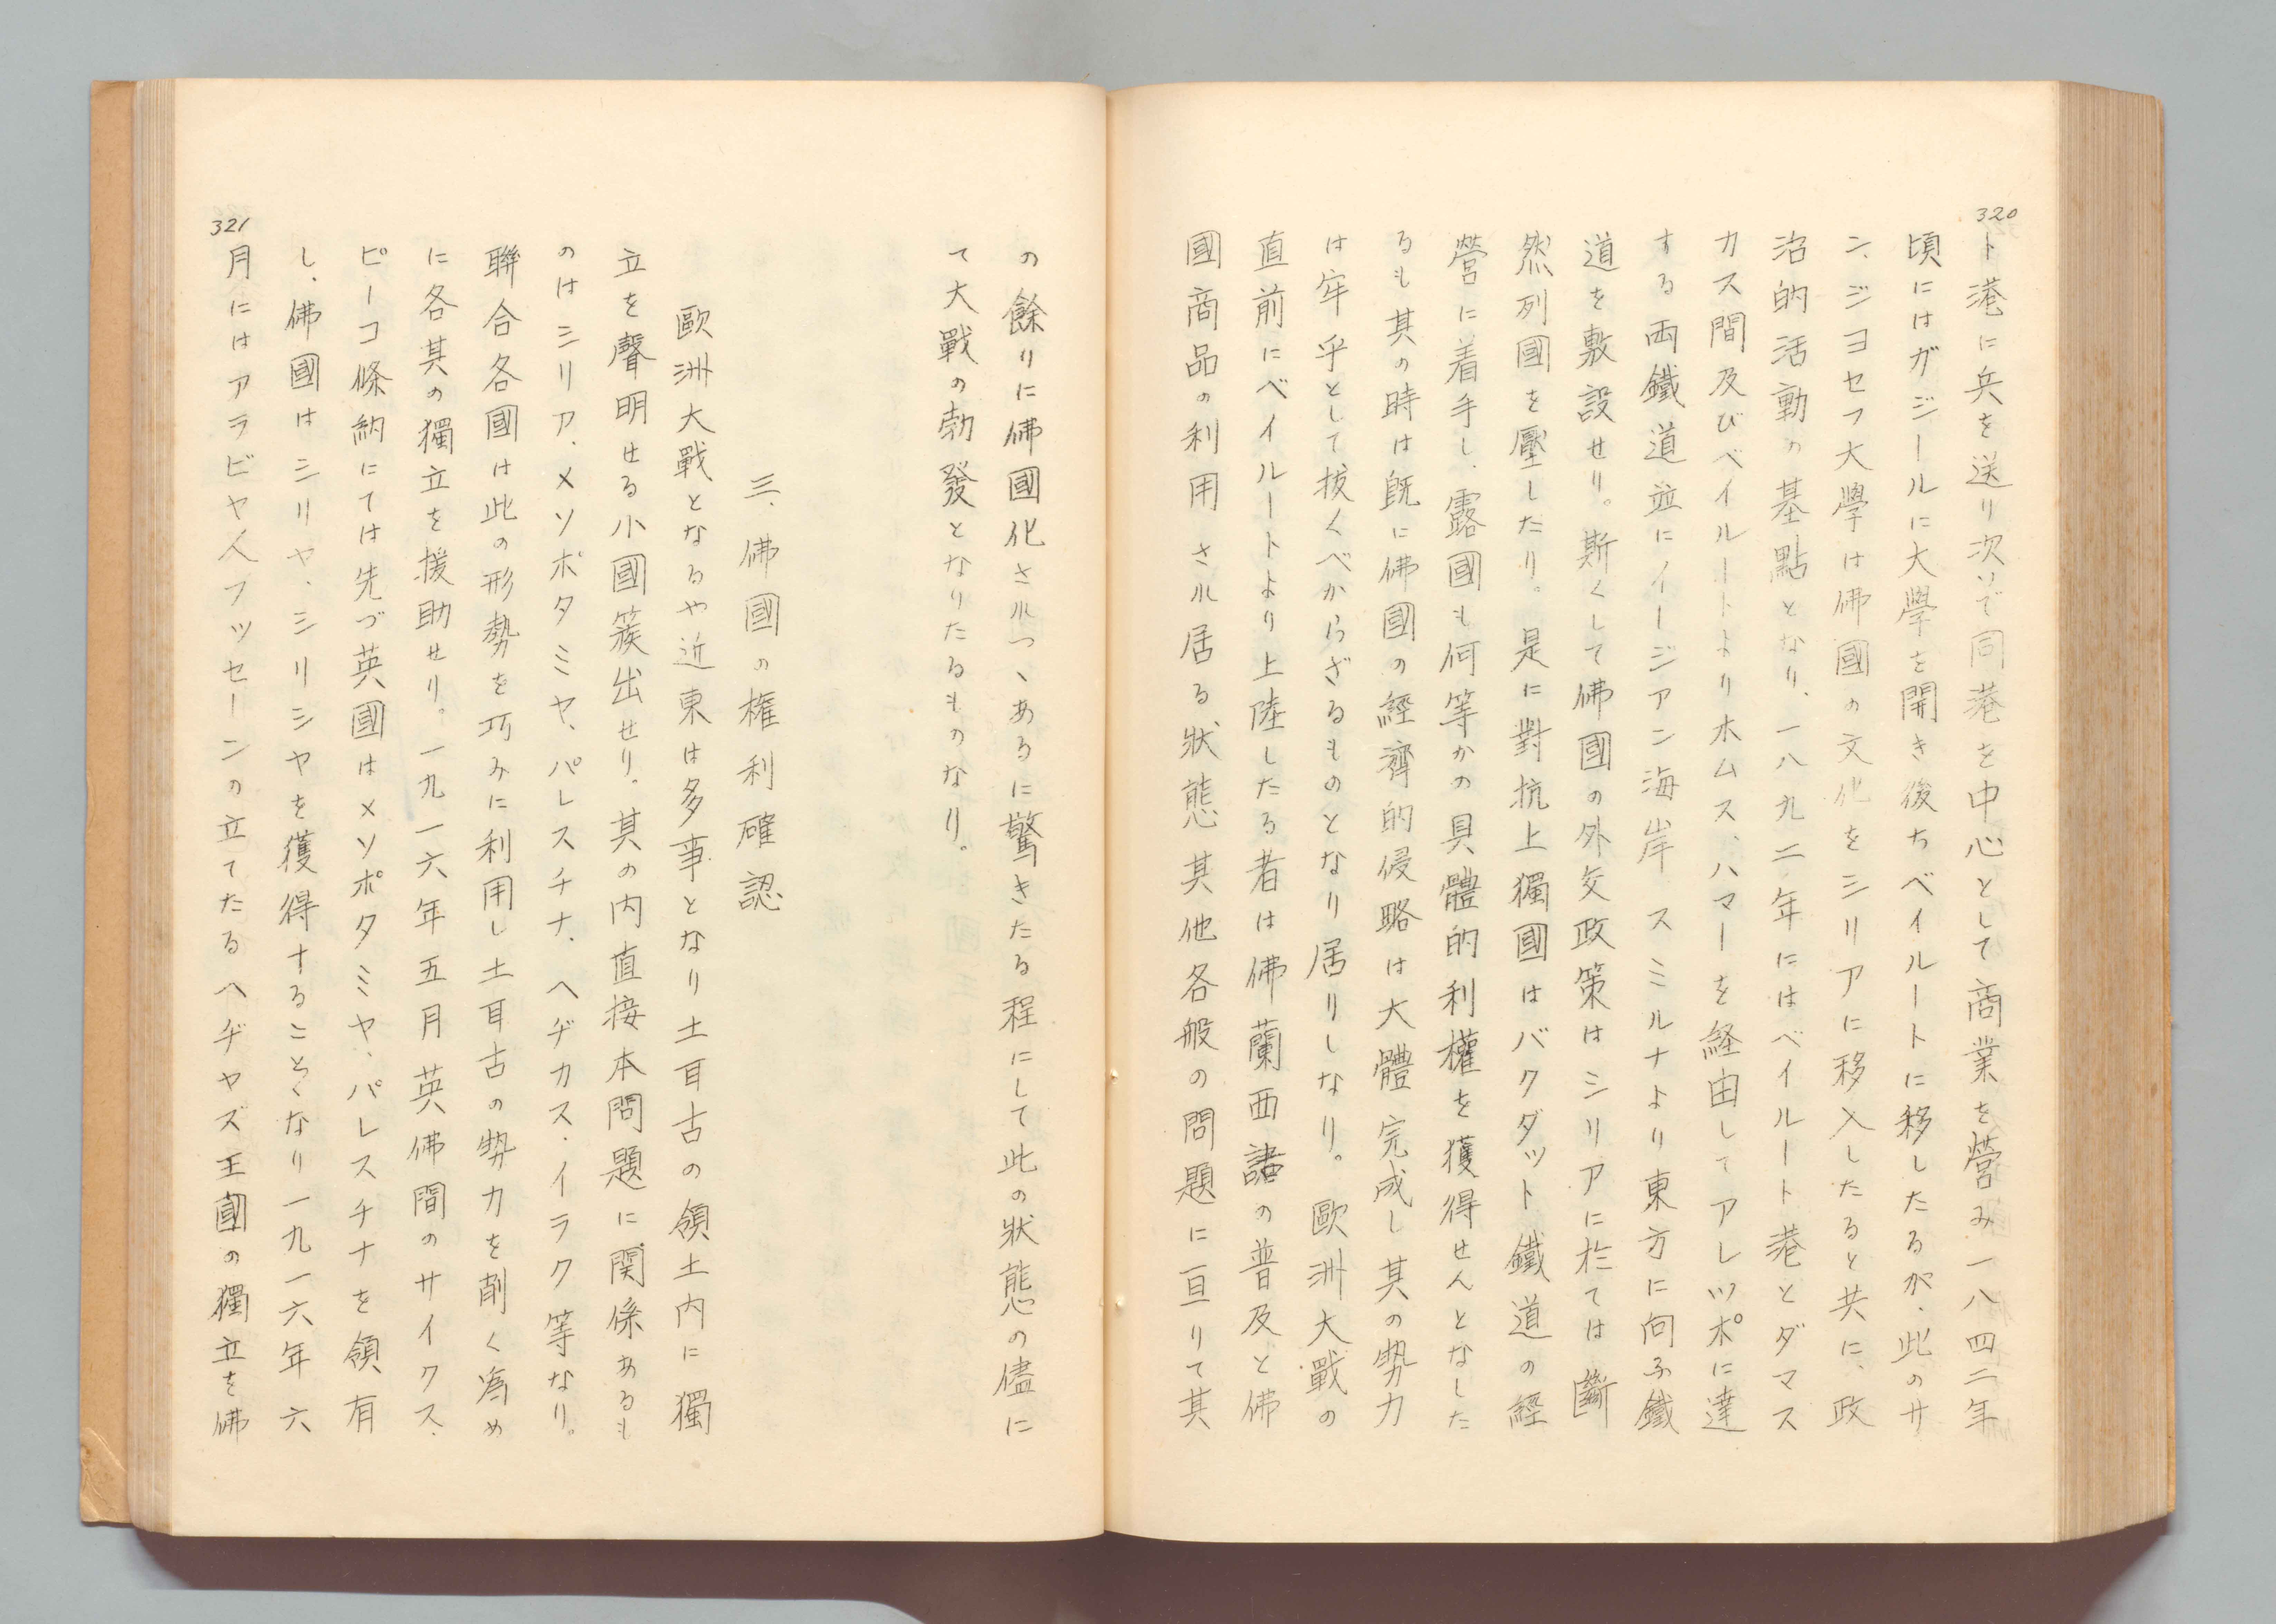 320
ト港に兵を送り次いで同港を中心として商業を營み一八四二年
頃にはガジールに大學を開き後ちベイルートに移したるが、此のサ
ン、ジヨセフ大學は佛國の文化をシリアに移入したると共に、政
治的活動の基點となり、一八九二年にはベイルート港とダマス
カス間及びベイルートよりホムス、ハマーを経由してアレツポに達
する両鐵道並にイージアン海岸スミルナより東方に向ふ鐵
道を敷設せり。斯くして佛國の外交政策はシリアに於ては斷
然列國を壓したり。是に對抗上獨國はバクダット鐵道の經
營に着手し、露國も何等かの具體的利權を獲得せんとなした
るも其の時は既に佛國の經濟的侵略は大體完成し其の勢力
は牢乎として抜くべからざるものとなり居りしなり。歐洲大戰の
直前にベイルートより上陸したる者は佛蘭西語の普及と佛
國商品の利用され居る狀態其他各般の問題に亘りて其
の餘りに佛國化されつゝあるに驚きたる程にして此の狀態の儘に
て大戰の勃發となりたるものなり。
三、佛國の権利確認
歐洲大戰となるや近東は多事となり土耳古の領土内に獨
立を聲明せる小國簇出せり。其の内直接本問題に関係あるも
のはシリア、メソポタミヤ、パレスチナ、ヘヂカス、イラク等なり。
聯合各國は此の形勢を巧みに利用し土耳古の勢力を削く為め
に各其の獨立を援助せり。一九一六年五月英佛間のサイクス、
ピーコ條約にては先づ英國はメソポタミヤ、パレスチナを領有
し、佛國はシリヤ、シリシヤを獲得することゝなり一九一六年六
月にはアラビヤ人フツセーンの立てたるヘヂヤズ王國の獨立を佛
321